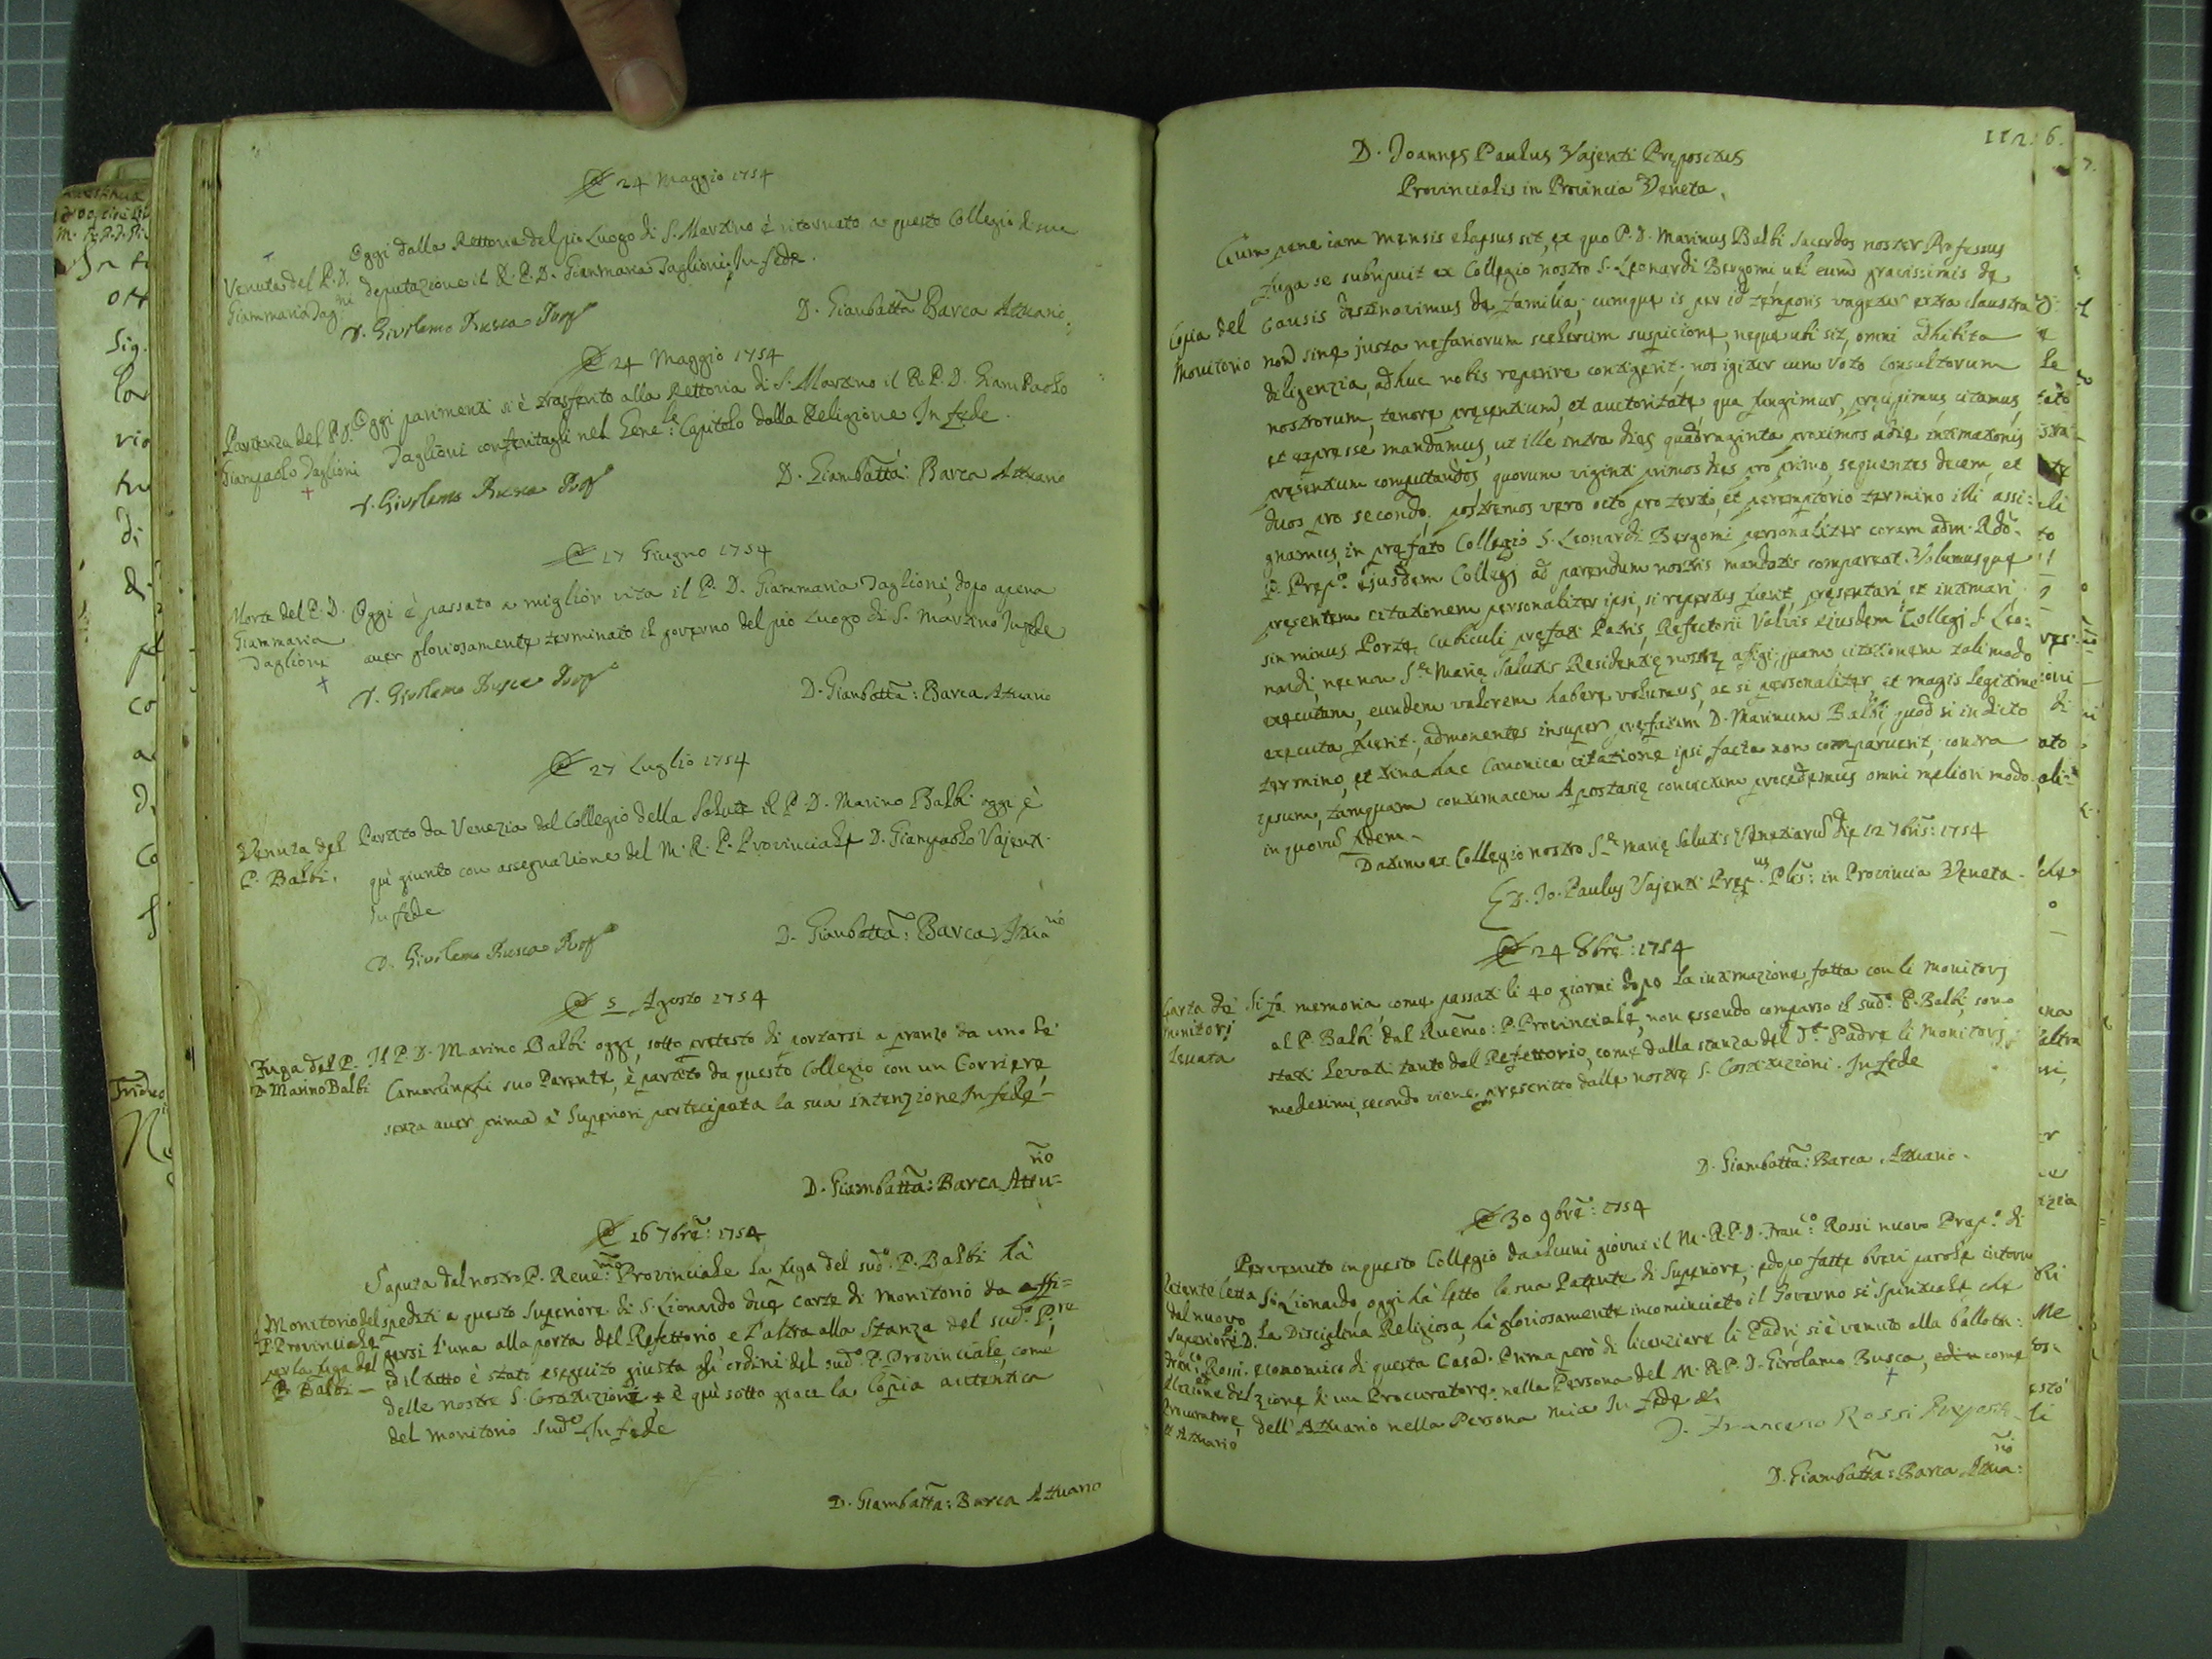 A 24 Maggio 1754
Venuta del P. D.
Giammaria Tag:ni
Oggi dalla Rettoria del pio Luogo di S. Martino è ritornato a questo Collegio di sua
deputazione il R. P. D. Gianmaria Taglioni; In fede.
D. Girolamo Busca Prop°
D. Gianbatta Barca Attuario
A 24 Maggio 1754
Partenza del P. D.
Giampaolo Taglioni
Oggi parimenti si è trasferito alla Rettoria di S. Martino il R. P. D. GiamPaolo
Taglioni conferitagli nel Gene:le Capitolo dalla Religione In fede.
D. Girolamo Busca Prop°
D. Giambatta: Barca Attuario
A 17 Giugno 1754
Morte del P. D.
Giammaria
Taglioni
Oggi è passato a miglior vita il P. D. Giammaria Taglioni, dopo apena
aver gloriosamente terminato il governo del pio Luogo di S. Martino In fede
D. Girolamo Busca Prop°
D. Gianbatta: Barca Attuario
A 27 Luglio 1754
Venuta del
P. Balbi.
Partito da Venezia dal Collegio della Salute il P. D. Marino Balbi oggi è
quì giunto con assegnazione del M. R. P. Provinciale D. Giampaolo Vajenti.
In fede
D. Girolamo Busca Prop°
D. Gianbatta: Barca Attuario
A 5 Agosto 1754
Fuga del P.
D. Marino Balbi
Il P. D. Marino Balbi oggi, sotto pretesto di portarsi a pranzo da uno de'
Camerlinghi suo Parente, è partito da questo Collegio con un Corriere
senza aver prima a' Superiori partecipata la sua intenzione In fede
D. Giambatta: Barca Attu=rio
A 16 7bre: 1754
Monitorio del
P. Provinciale
per la fuga del
P. Balbi
Saputa dal nostro P. Reve:mo Provinciale la fuga del sud° P. Balbi hà
spediti a questo Superiore di S. Lionardo due carte di Monitorio da affi=
gersi l'una alla porta del Refettorio e l'altra alla Stanza del sud° P.re,
ed il tutto è stato eseguito giusta gli ordini del sud° P. Provinciale come
delle nostre S. Costituzioni, e quì sotto giace la copia autentica
del monitorio sud° In fede
D. Giambatta: Barca Attuario
112. 6.
D. Joannes Paulus Vajenti Prępositus
Provincialis in Provincia Veneta.
Copia del
Monitorio
Cum pene iam Mensis elapsus sit, ex quo P. D. Marinus Balbi Sacerdos noster Professus
fuga se subripuit ex Collegio nostro S. Leonardi Bergomi ubi eum gravissimis de
causis destinavimus de familia; cumque is per id temporis vagetur extra claustra
non sine justa nefariorum scelerum suspicione, neque ubi sit, omni adhibita
diligenzia, adhuc nobis reperire contigerit; nos igitur cum Voto Consultorum
nostrorum, tenore pręsentium, et auctoritate qua fungimur, pręcipimus citamus
et expresse mandamus, ut ille intra dies quadraginta proximos a die intimationis
pręsentium computandos quorum viginti primos dies pro primo, sequentes decem, et
duos pro secondo, postremos vero octo pro tertio, et peremptorio termino illi assi:
gnamus, in pręfato Collegio S. Leonardi Bergomi personaliter coram adm. Rdo
P. Prep° ejusdem Collegj ad parendum nostris mandatis compareat. Volumusque
pręsentem citationem personaliter ipsi, si repertus fuerit, pręsentari et intimari
sin minus Portę Cubiculi pręfati Patris, Refectorii Valvis ejusdem Collegj S. Leo:
nardi, nec non S.tę Marię Salutis Residentię nostrę affigi, quam citationem tali modo
executam, eundem valorem habere volumus, ac si personaliter, et magis legitime
executa fuerit; admonentes insuper pręfatum D. Marinum Balbi quod si in dicto
termino, et trina hac Canonica citatione ipsi facta non comparuerit, contra
ipsum, tamquam contumacem Apostasię convictum procedemus omni meliori modo.
in quorum fidem.
Datum ex Collegio nostro S.tę Marię Salutis Venetiarum die 12 7bris: 1754
D. Jo. Paulus Vajenti Prep.us Plis: in Provincia Veneta.
A 24 8bre: 1754
Carta de'
monitorj
levata
Si fà memoria, come passati li 40 giorni dopo la intimazione fatta con li monitorj
al P. Balbi dal Ruemo: P. Provinciale, non essendo comparso il sud° P. Balbi, sono
stati levati tanto dal Refettorio, come dalla stanza del d.to Padre li monitorj
medesimi, secondo viene prescritto dalle nostre S. Costituzioni. In fede
D. Giambatta: Barca Attuario.
A 30 9bre: 1754
Patente letta
dal nuovo
Superiore D.
Fran:° Rossi.
elezione del
Procuratore,
et Attuario
Pervenuto in questo Collegio da alcuni giorni il M. R. P. D. Fran:co Rossi nuovo Prep.° di
S. Lionardo, oggi hà letto la sua Patente di Superiore; e dopo fatte brevi parole intorno
la Disciplina Religiosa, hà gloriosamente incominciato il Governo sì Spirituale che
economico di questa Casa. Prima però di licenziare li Padri, si è venuto alla ballota:
zione di un Procuratore nella Persona del M. R. P. D. Girolamo Busca, come
dell'Attuario nella Persona mia In fede
D. Francesco Rossi Preposto
D. Giambatta: Barca Attua:rio